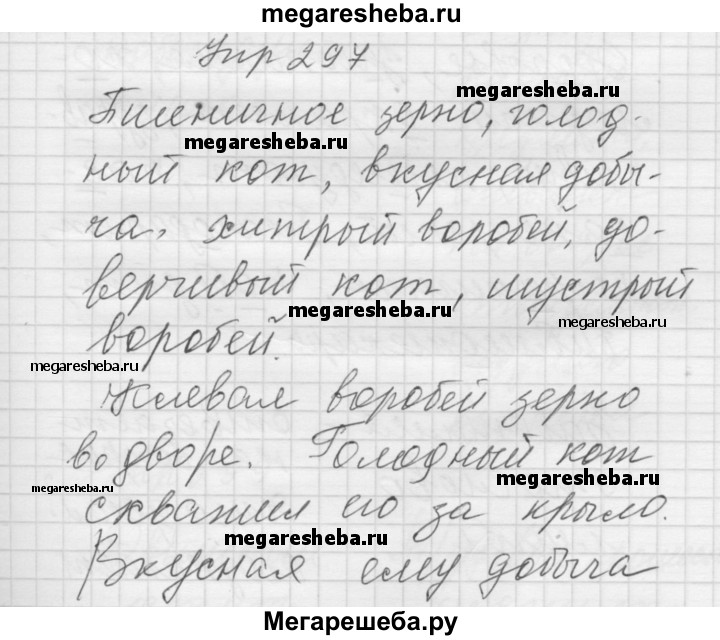 megaresheba.ru
Упр 297
megaresheba.ru
Пшеничное зерно, голод-
megaresheba.ru
ный кот, вкусная добы-
ча, хитрый воробей, до-
верчивый кот, шустрый
megaresheba.ru
megaresheba.ru
воробей.
megaresheba.ru
Клевал воробей зерно
во дворе. Голодный кот
megaresheba.ru
megaresheba.ru
схватил его за крыло.
megaresheba.ru
Вкусная ему добыча
Мегарешеба.ру